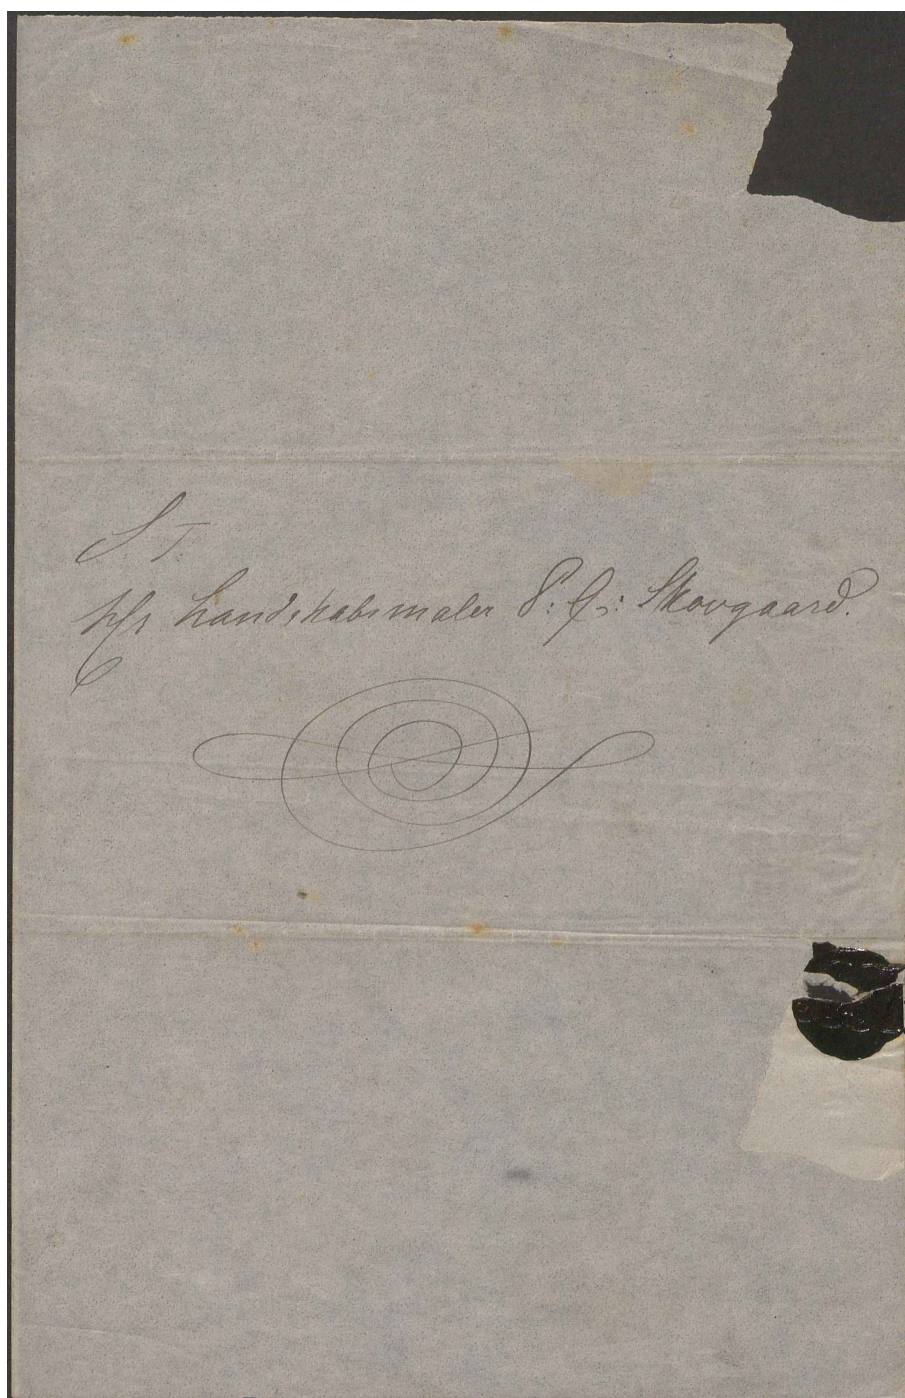 S. T.
Hr Landskabsmaler P: C: Skovgaard.